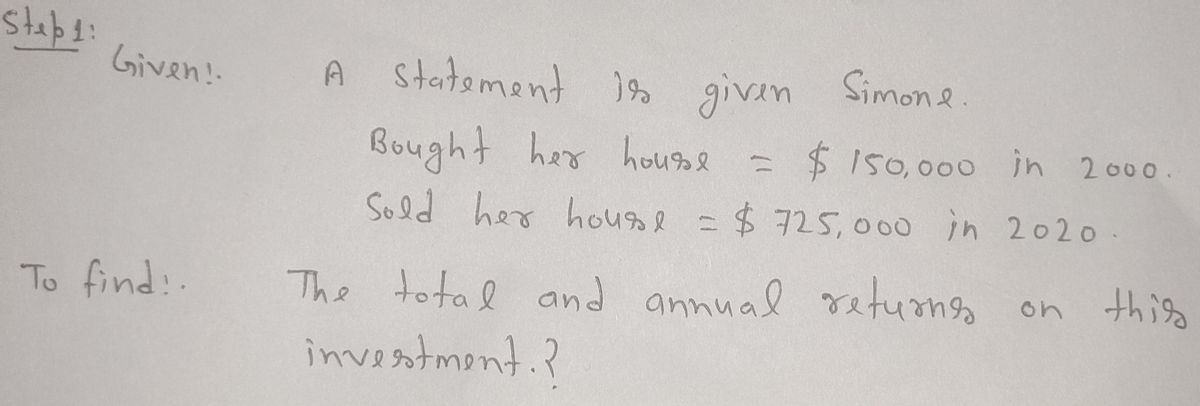 Step 1:
Given:. A statement is given Simone.
Bought her house = $ 150,000 in 2000.
Sold her house = $ 725,000 in 2020.
To find:. The total and annual returns on this
investment.?